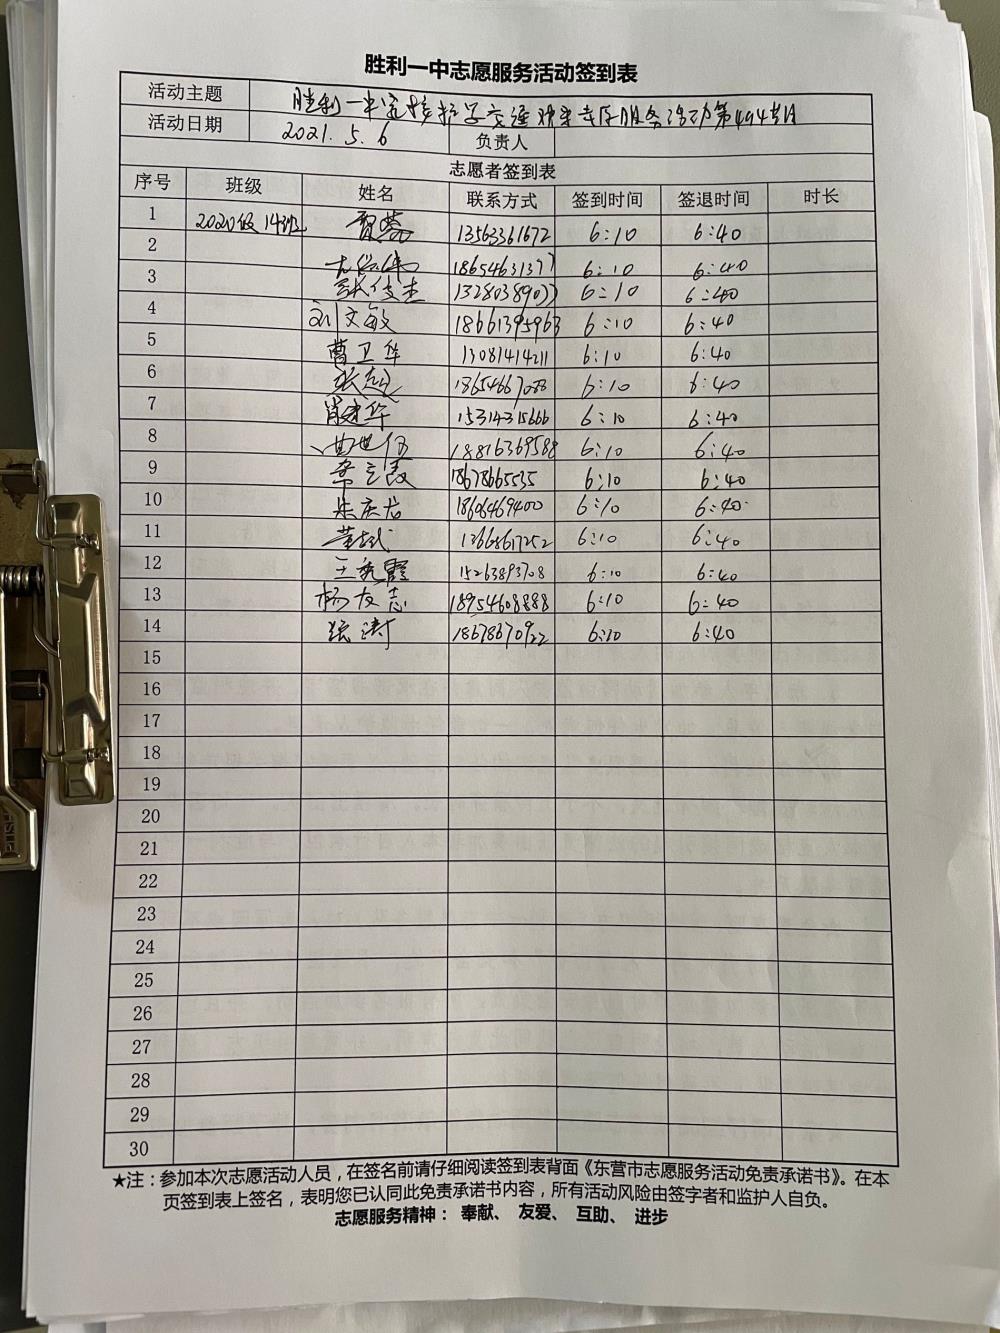 胜利一中志愿服务活动签到表
活动主题 胜利一中 服务活动第494期
活动日期 2021.5.6 负责人
志愿者签到表
序号 班级 姓名 联系方式 签到时间 签退时间 时长
1 2020级14班 贺蕊 13563361672 6:10 6:40
2 6:10 6:40
3 张俊杰 6:10 6:40
4 刘文敏 18661395963 6:10 6:40
5 曹卫华 13081414211 6:10 6:40
6 6:10 6:40
7 肖建华 15314315666 6:10 6:40
8 18816369588 6:10 6:40
9 18678665535 6:10 6:40
10 18606469400 6:10 6:40
11 6:10 6:40
12 王艳霞 15263893708 6:10 6:40
13 杨友志 18954608888 6:10 6:40
14 18678670922 6:10 6:40
15
16
17
18
19
20
21
22
23
24
25
26
27
28
29
30
★注：参加本次志愿活动人员，在签名前请仔细阅读签到表背面《东营市志愿服务活动免责承诺书》。在本
页签到表上签名，表明您已认同此免责承诺书内容，所有活动风险由签字者和监护人自负。
志愿服务精神： 奉献、 友爱、 互助、 进步